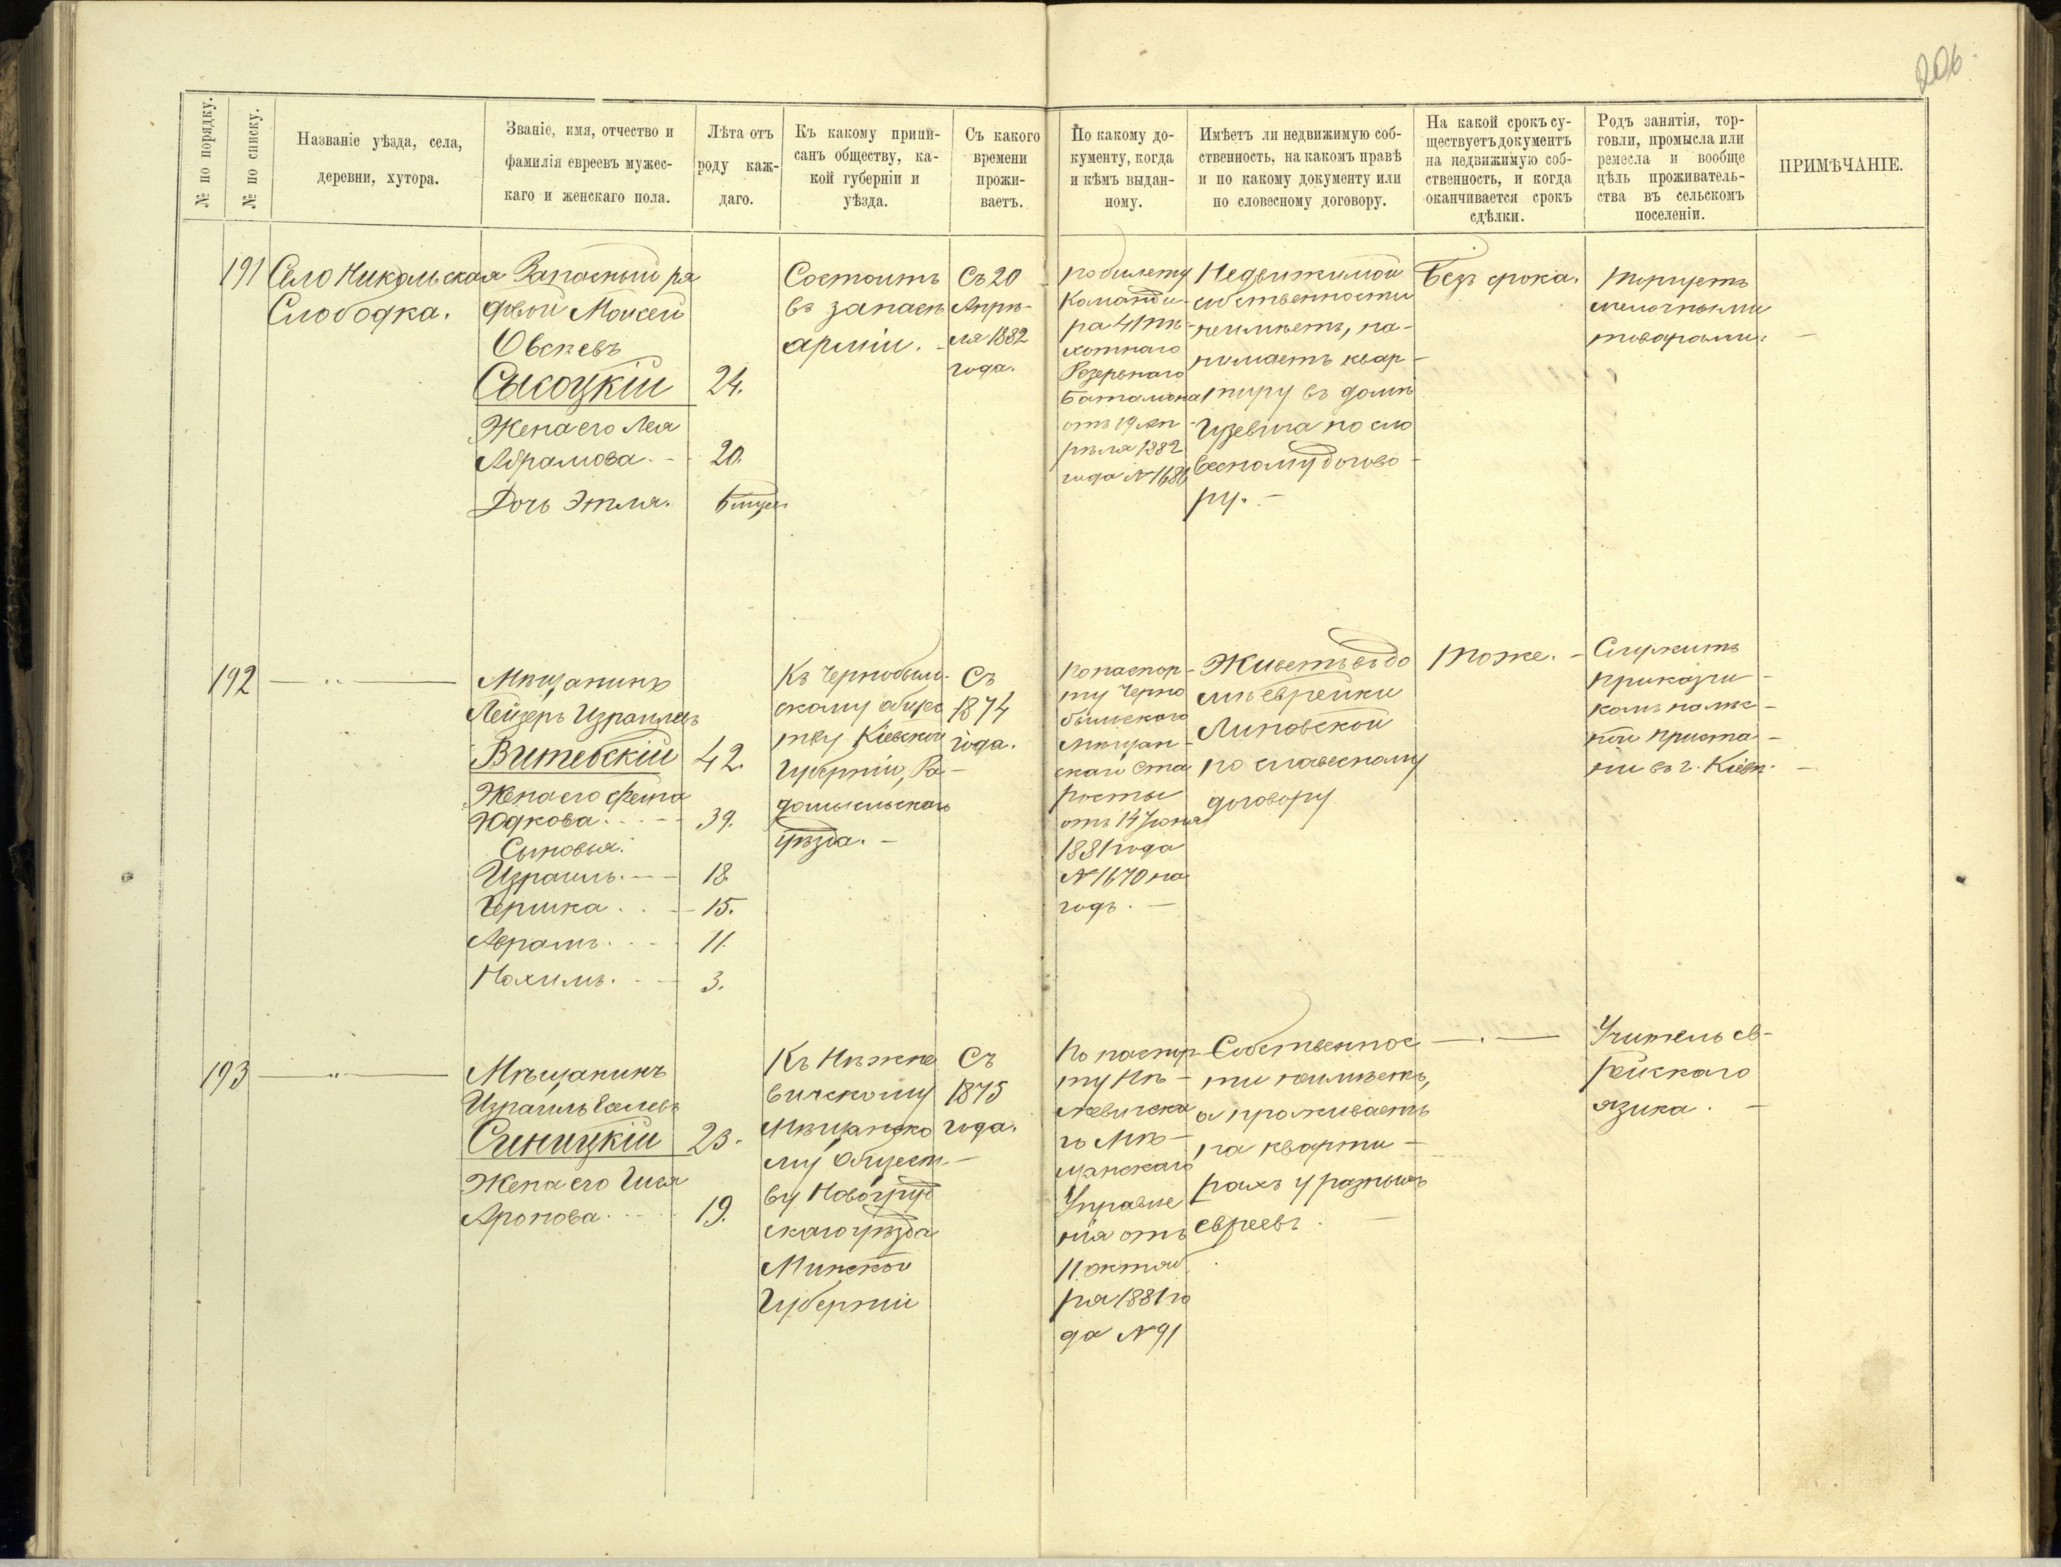 206.
№ по порядку.
№ по списку.
Названіе уѣзда, села,
деревни, хутора.
Званіе, имя, отчество и
фамилія евреевъ мужес-
каго и женскаго пола.
Лѣта отъ
роду каж-
даго.
Къ какому припи-
санъ обществу, ка-
кой губерніи и
уѣзда.
Съ какого
времени
прожи-
ваетъ.
По какому до-
кументу, когда
и кѣмъ выдан-
ному.
Имѣетъ ли недвижимую соб-
ственность, на какомъ правѣ
и по какому документу или
по словесному договору.
На какой срокъ су-
ществуетъ документъ
на недвижимую соб-
ственность, и когда
оканчивается срокъ
сдѣлки.
Родъ занятія, тор-
говли, промысла или
ремесла и вообще
цѣль проживатель-
ства въ сельскомъ
поселеніи.
ПРИМѢЧАНІЕ.
191
Село Никольская
Слободка.
Запасный ря
довой Моисей
Овсѣевъ
Сысоцкій 24.
Жена его Лея
Абрамова. 20.
Дочь Этля. 6 мѣсяц
Состоитъ
въ запасѣ
арміи.
Съ 20
Апрѣ-
ля 1882
года.
По билету
Команди-
ра 41 пѣ-
хотнаго
Резервнаго
Баталіона
отъ 19 Ап
рѣля 1882
года № 1686
Недвижимой
собственности
неимѣетъ, на-
нимаетъ квар-
тиру въ домѣ
Гузевича по сло
весному догово-
ру.
Безъ срока.
Торгуетъ
мелочными
товарами.
192
Мѣщанинъ
Лейзеръ Израилевъ
Витебскій 42.
Жена его Фейга
Юдкова. 39.
Сыновья:
Израиль. 18.
Гершка. 15.
Абрамъ. 11.
Нохимъ. 3.
Къ Чернобыль-
скому общес
тву Кіевской
Губерніи, Ра-
домысльскаго
уѣзда.
Съ
1874
года.
По паспор-
ту Черно
быльскаго
Мѣщан-
скаго Ста
росты
отъ 14 Іюня
1881 года
№ 1670 на
годъ.
Живетъ въ до
мѣ еврейки
Липовской
по словесному
договору
Тоже.
Служитъ
приказчи-
комъ на лѣс-
ной приста-
ни въ г. Кіевѣ.
193
Мѣщанинъ
Израиль
Синицкій 23.
Жена его Гитя
Аронова. 19.
Къ Нѣжне
вичскому
Мѣщанско
му Общест-
ву Новогруд
скаго уѣзда
Минской
Губерніи
Съ
1875
года.
По паспор
ту Нѣ-
жневичска
го Мѣ-
щанскаго
Управле
нія отъ
11 октяб
ря 1881 го
да № 91
Собственнос
ти неимѣетъ,
а проживаетъ
на кварти-
рахъ у разныхъ
евреевъ.
Учитель ев-
рейскаго
языка.